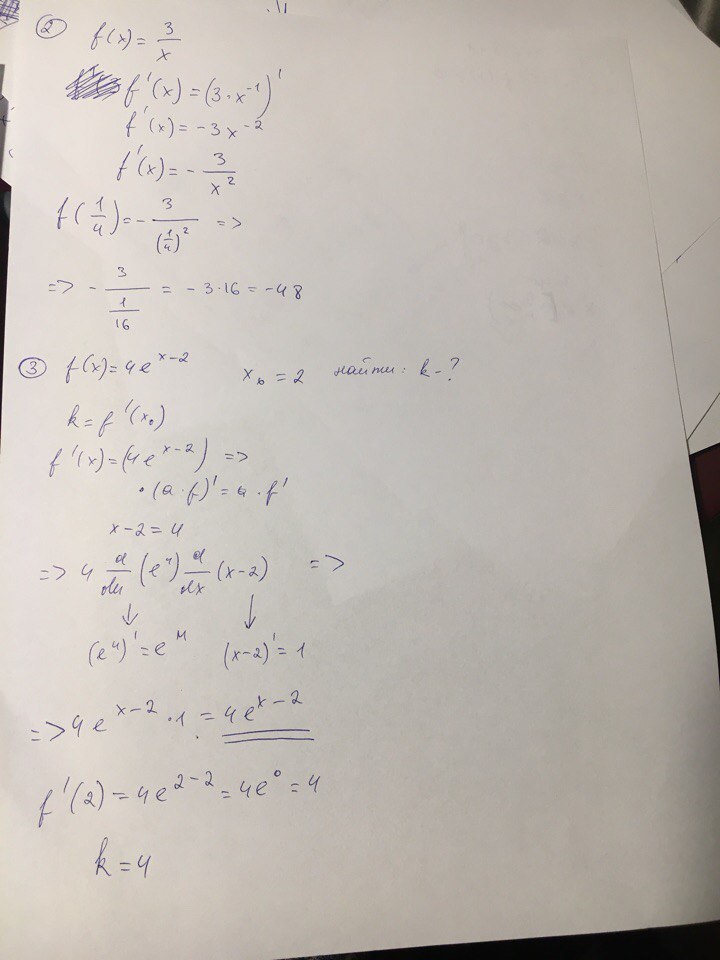 2 f(x) = 3/x
f'(x) = (3 · x⁻¹)'
f'(x) = -3x⁻²
f'(x) = - 3/x²
f(1/4) = - 3/(1/4)² =>
=> - 3/(1/16) = -3·16 = -48
3 f(x) = 4e^(x-2) x₀ = 2 найти: k - ?
k = f'(x₀)
f'(x) = (4e^(x-2)) =>
• (a · f)' = a · f'
x-2 = u
=> 4 d/du (e^u) d/dx (x-2) =>
↓ ↓
(e^u)' = e^u (x-2)' = 1
=> 4e^(x-2) · 1 = 4e^(x-2)
f'(2) = 4e^(2-2) = 4e⁰ = 4
k = 4